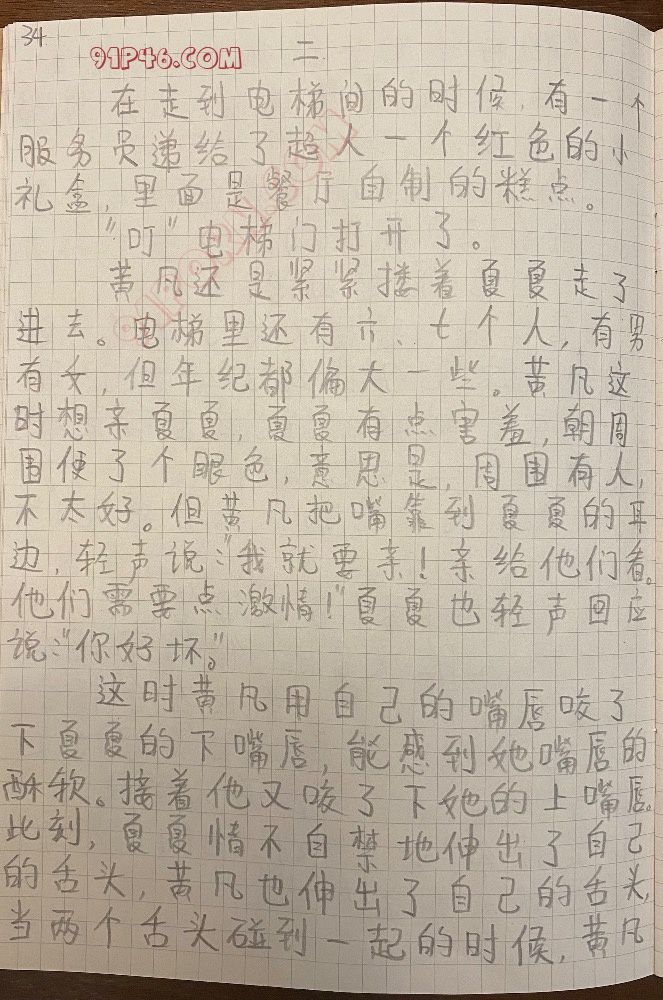 34
91P46.COM
二
在走到电梯间的时候,有一个
服务员递给了超人一个红色的小
礼盒,里面是餐厅自制的糕点。
“叮”电梯门打开了。
黄凡还是紧紧搂着夏夏走了
进去。电梯里还有六、七个人,有男
有女,但年纪都偏大一些。黄凡这
时想亲夏夏,夏夏有点害羞,朝周
围使了个眼色,意思是,周围有人,
不太好。但黄凡把嘴靠到夏夏的耳
边,轻声说:“我就要亲!亲给他们看。
他们需要点激情!”夏夏也轻声回应
说:“你好坏。”
这时黄凡用自己的嘴唇咬了
下夏夏的下嘴唇,能感到她嘴唇的
酥软。接着他又咬了下她的上嘴唇。
此刻,夏夏情不自禁地伸出了自己
的舌头,黄凡也伸出了自己的舌头,
当两个舌头碰到一起的时候,黄凡